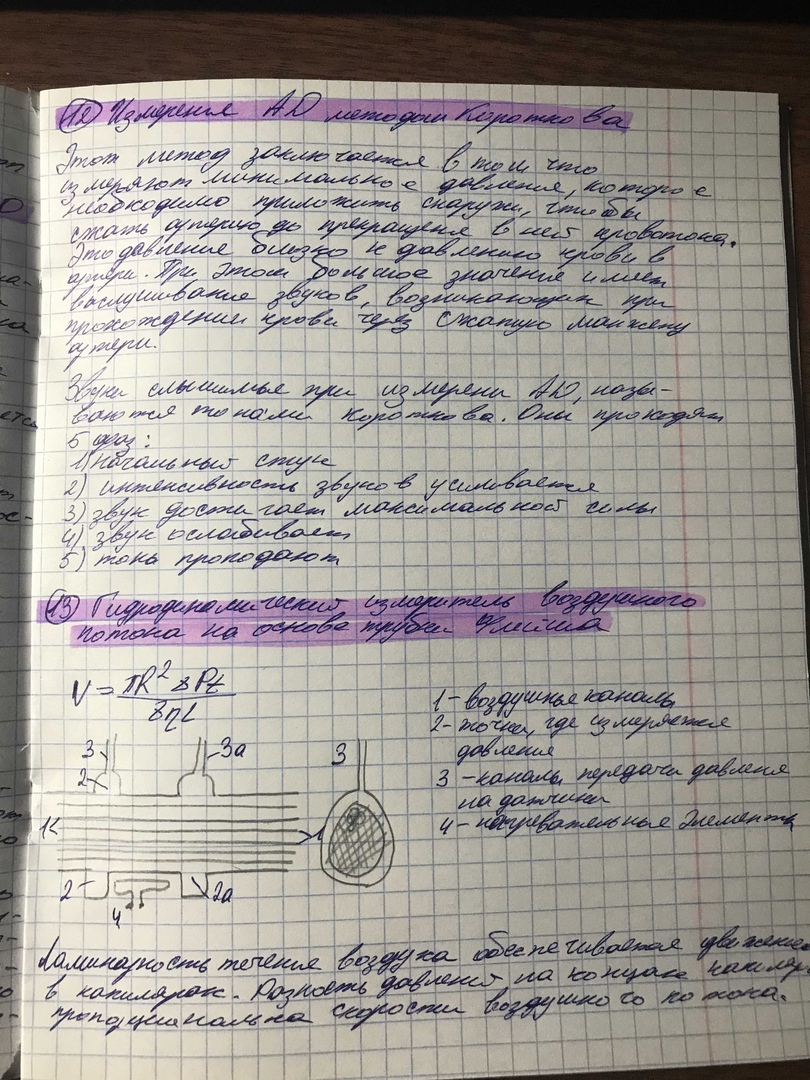 12 Измерение АД методом Короткова
Этот метод заключается в том что
измеряют минимальное давление, которое
необходимо приложить снаружи, чтобы
сжать артерию до прекращения в ней кровотока.
Это давление близко к давлению крови в
артери. При этом большое значение имеет
выслушивание звуков, возникающих при
прохождении крови через сжатую манжету
артери.
Звуки слышимые при измерени АД, назы-
ваются тонами Короткова. Они проходят
5 фаз:
1) начальный стук
2) интенсивность звуков усиливается
3) звук достигает максимальной силы
4) звук ослабивает
5) тоны пропадают
13 Гидродинамический измеритель воздушного
потока на основе трубки Флейша
1 - воздушные каналы
2 - точки, где измеряется
давление
3 - каналы передачи давления
на датчики
4 - нагревательные элементы
3
3а
3
2
1
1
2
2а
4
Ламинарность течения воздуха обеспечивается движение
в капилярах. Разность давлений на концах капиляр
пропорциональна скорости воздушного потока.